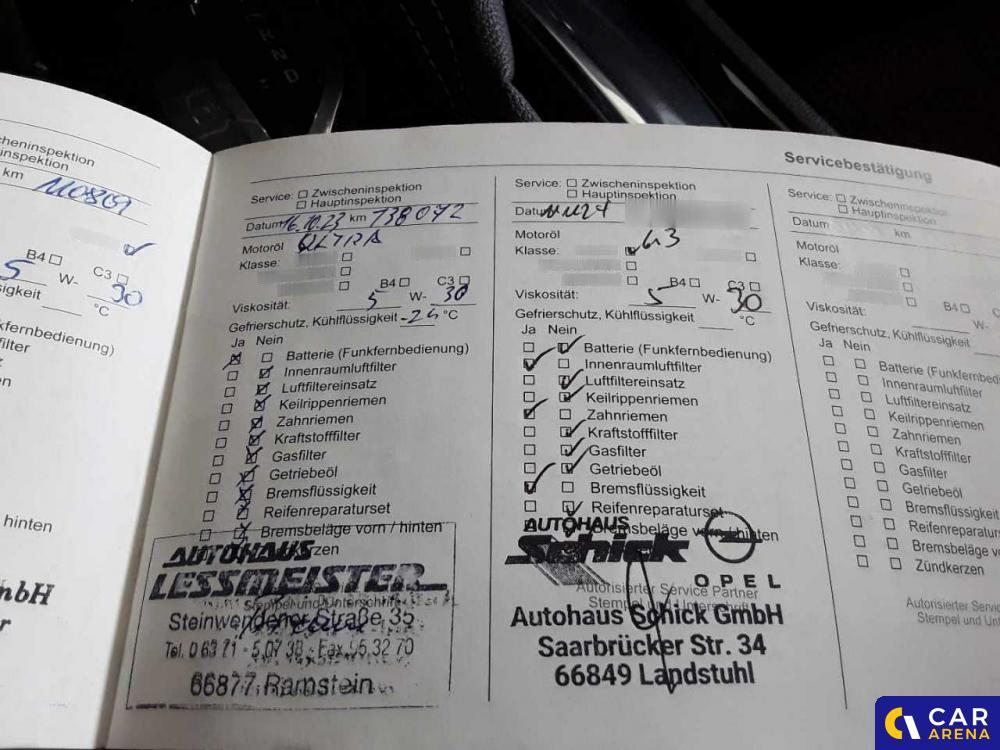 K N D
Zwischeninspektion
inspektion
km 110869
5 W- 30
B4 C3
°C
kfernbedienung)
hinten
mbH
Servicebestätigung
Service: Zwischeninspektion
Hauptinspektion
Datum 16.10.23 km 138072
Motoröl
Klasse:
B4 C3
Viskosität: 5 W- 30
Gefrierschutz, Kühlflüssigkeit -26 °C
Ja Nein
Batterie (Funkfernbedienung)
Innenraumluftfilter
Luftfiltereinsatz
Keilrippenriemen
Zahnriemen
Kraftstofffilter
Gasfilter
Getriebeöl
Bremsflüssigkeit
Reifenreparaturset
Bremsbeläge vorn / hinten
AUTOHAUS
LESSMEISTER
Stempel und Unterschrift
Steinwendener Straße 35
Tel. 0 63 71 - 5 07 38 - Fax 95 32 70
66877 Ramstein
Service: Zwischeninspektion
Hauptinspektion
Datum
Motoröl
Klasse:
B4 C3
Viskosität: 5 W- 30
Gefrierschutz, Kühlflüssigkeit °C
Ja Nein
Batterie (Funkfernbedienung)
Innenraumluftfilter
Luftfiltereinsatz
Keilrippenriemen
Zahnriemen
Kraftstofffilter
Gasfilter
Getriebeöl
Bremsflüssigkeit
Reifenreparaturset
Bremsbeläge vorn / hinten
AUTOHAUS
Schick
OPEL
Autorisierter Service Partner
Stempel und Unterschrift
Autohaus Schick GmbH
Saarbrücker Str. 34
66849 Landstuhl
Service: Zwischeninspektion
Hauptinspektion
Datum km
Motoröl
Klasse:
B4
Viskosität: W-
Gefrierschutz, Kühlflüssigkeit
Ja Nein
Batterie (Funkfernbedie
Innenraumluftfilter
Luftfiltereinsatz
Keilrippenriemen
Zahnriemen
Kraftstofffilter
Gasfilter
Getriebeöl
Bremsflüssigkeit
Reifenreparatur
Bremsbeläge vo
Zündkerzen
Autorisierter Servic
Stempel und Unt
CAR
ARENA